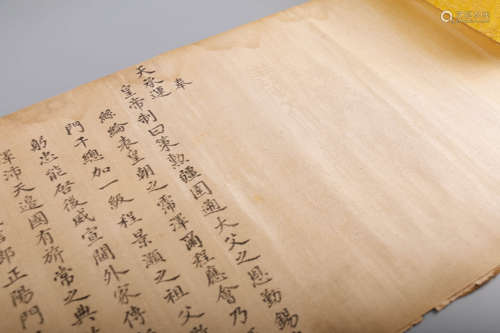 奉
天承運
皇帝制曰策勲疆圉通大父之恩勤錫
絲綸表皇朝之霈澤爾程應會乃
門千總加一級程景灝之祖父
躬忠能啓後威宣閫外家傳
沛天邉國有旂常之典
郎正陽門